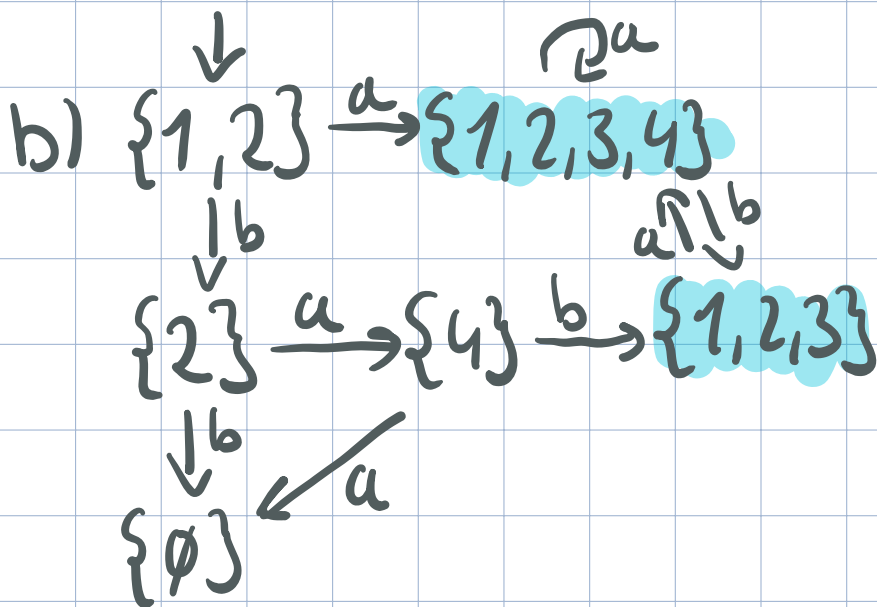 b) {1,2} a {1,2,3,4} a
b a b
{2} a {4} b {1,2,3}
b a
{ø}